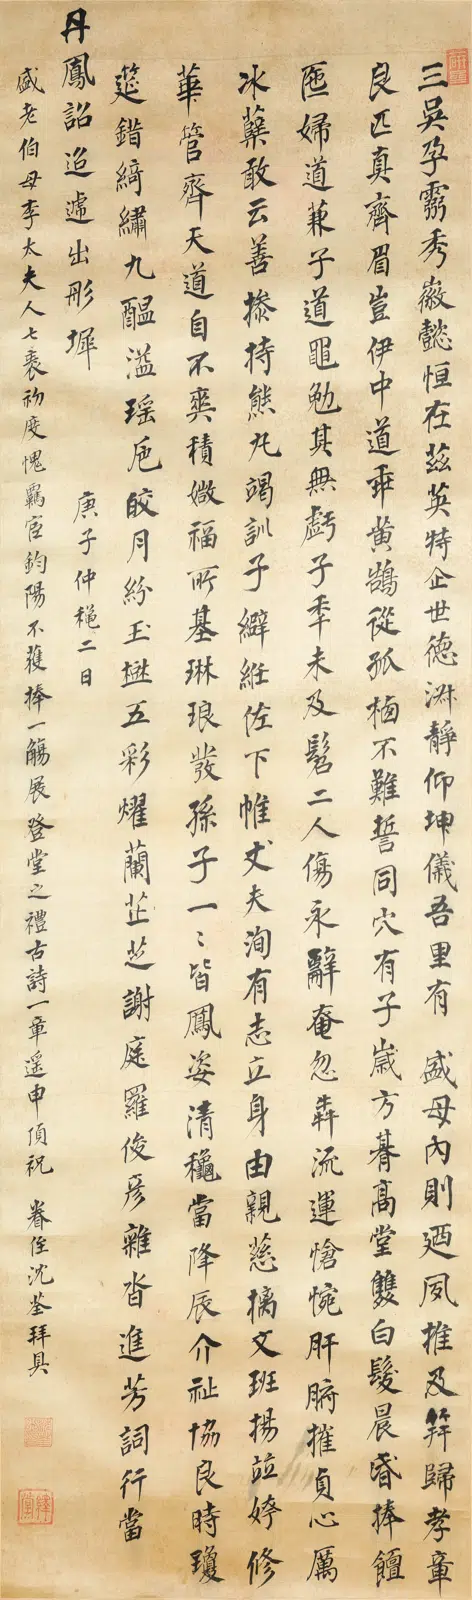 三吳孕靈秀徽懿恒在茲英特企世德淑靜仰坤儀吾里有盛母內則迺夙推及笄歸孝章
良匹真齊眉豈伊中道乖黃鵠從孤栖不難誓同穴有子歲方朞高堂雙白髮晨昏捧饘
匜婦道兼子道黽勉其無虧子年未及髫二人傷永辭奄忽犇流運愴惋肝腑摧貞心厲
冰蘗敢云善撡持熊丸竭訓子綷紝佐下帷丈夫洵有志立身由親慈摛文班揚竝姱修
華管齊天道自不爽積媺福所基琳琅發孫子一〻皆鳳姿清穐當降辰介祉協良時瓊
筵錯綺繡九醞溢瑤卮皎月紛玉樹五彩燿蘭芷芝謝庭羅俊彥雜沓進芳詞行當
丹鳳詔迢遞出彤墀
庚子仲穐二日
盛老伯母李太夫人七袠初度愧羈宦鈞陽不獲捧一觴展登堂之禮古詩一章遥申頂祝 眷侄沈荃拜具